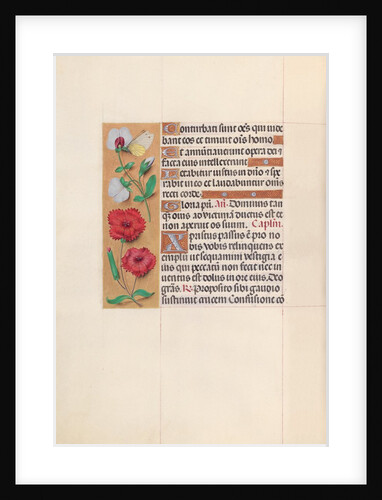 Conturbati sunt oẽs qui uide
bant eos et timuit oĩs homo
Et annuntiauerunt opera dei et
facta eius intellexerunt
Letabitur iustus in dño et spe
rabit in eo et laudabuntur oẽs
recti corde.
Gloria pri. Añ. Dominus tan
q̃ ouis ad uictimã ductus est et
non aperuit os suum. Caplm.
Xpristus passus ẽ pro no
bis uobis relinquens ex
emplũ ut sequamini uestigia e
ius qui peccatũ non fecit nec in
uentus est dolus in ore eius. Deo
grãs. R. Proposito sibi gaudio
sustinuit crucem Confusione cõ